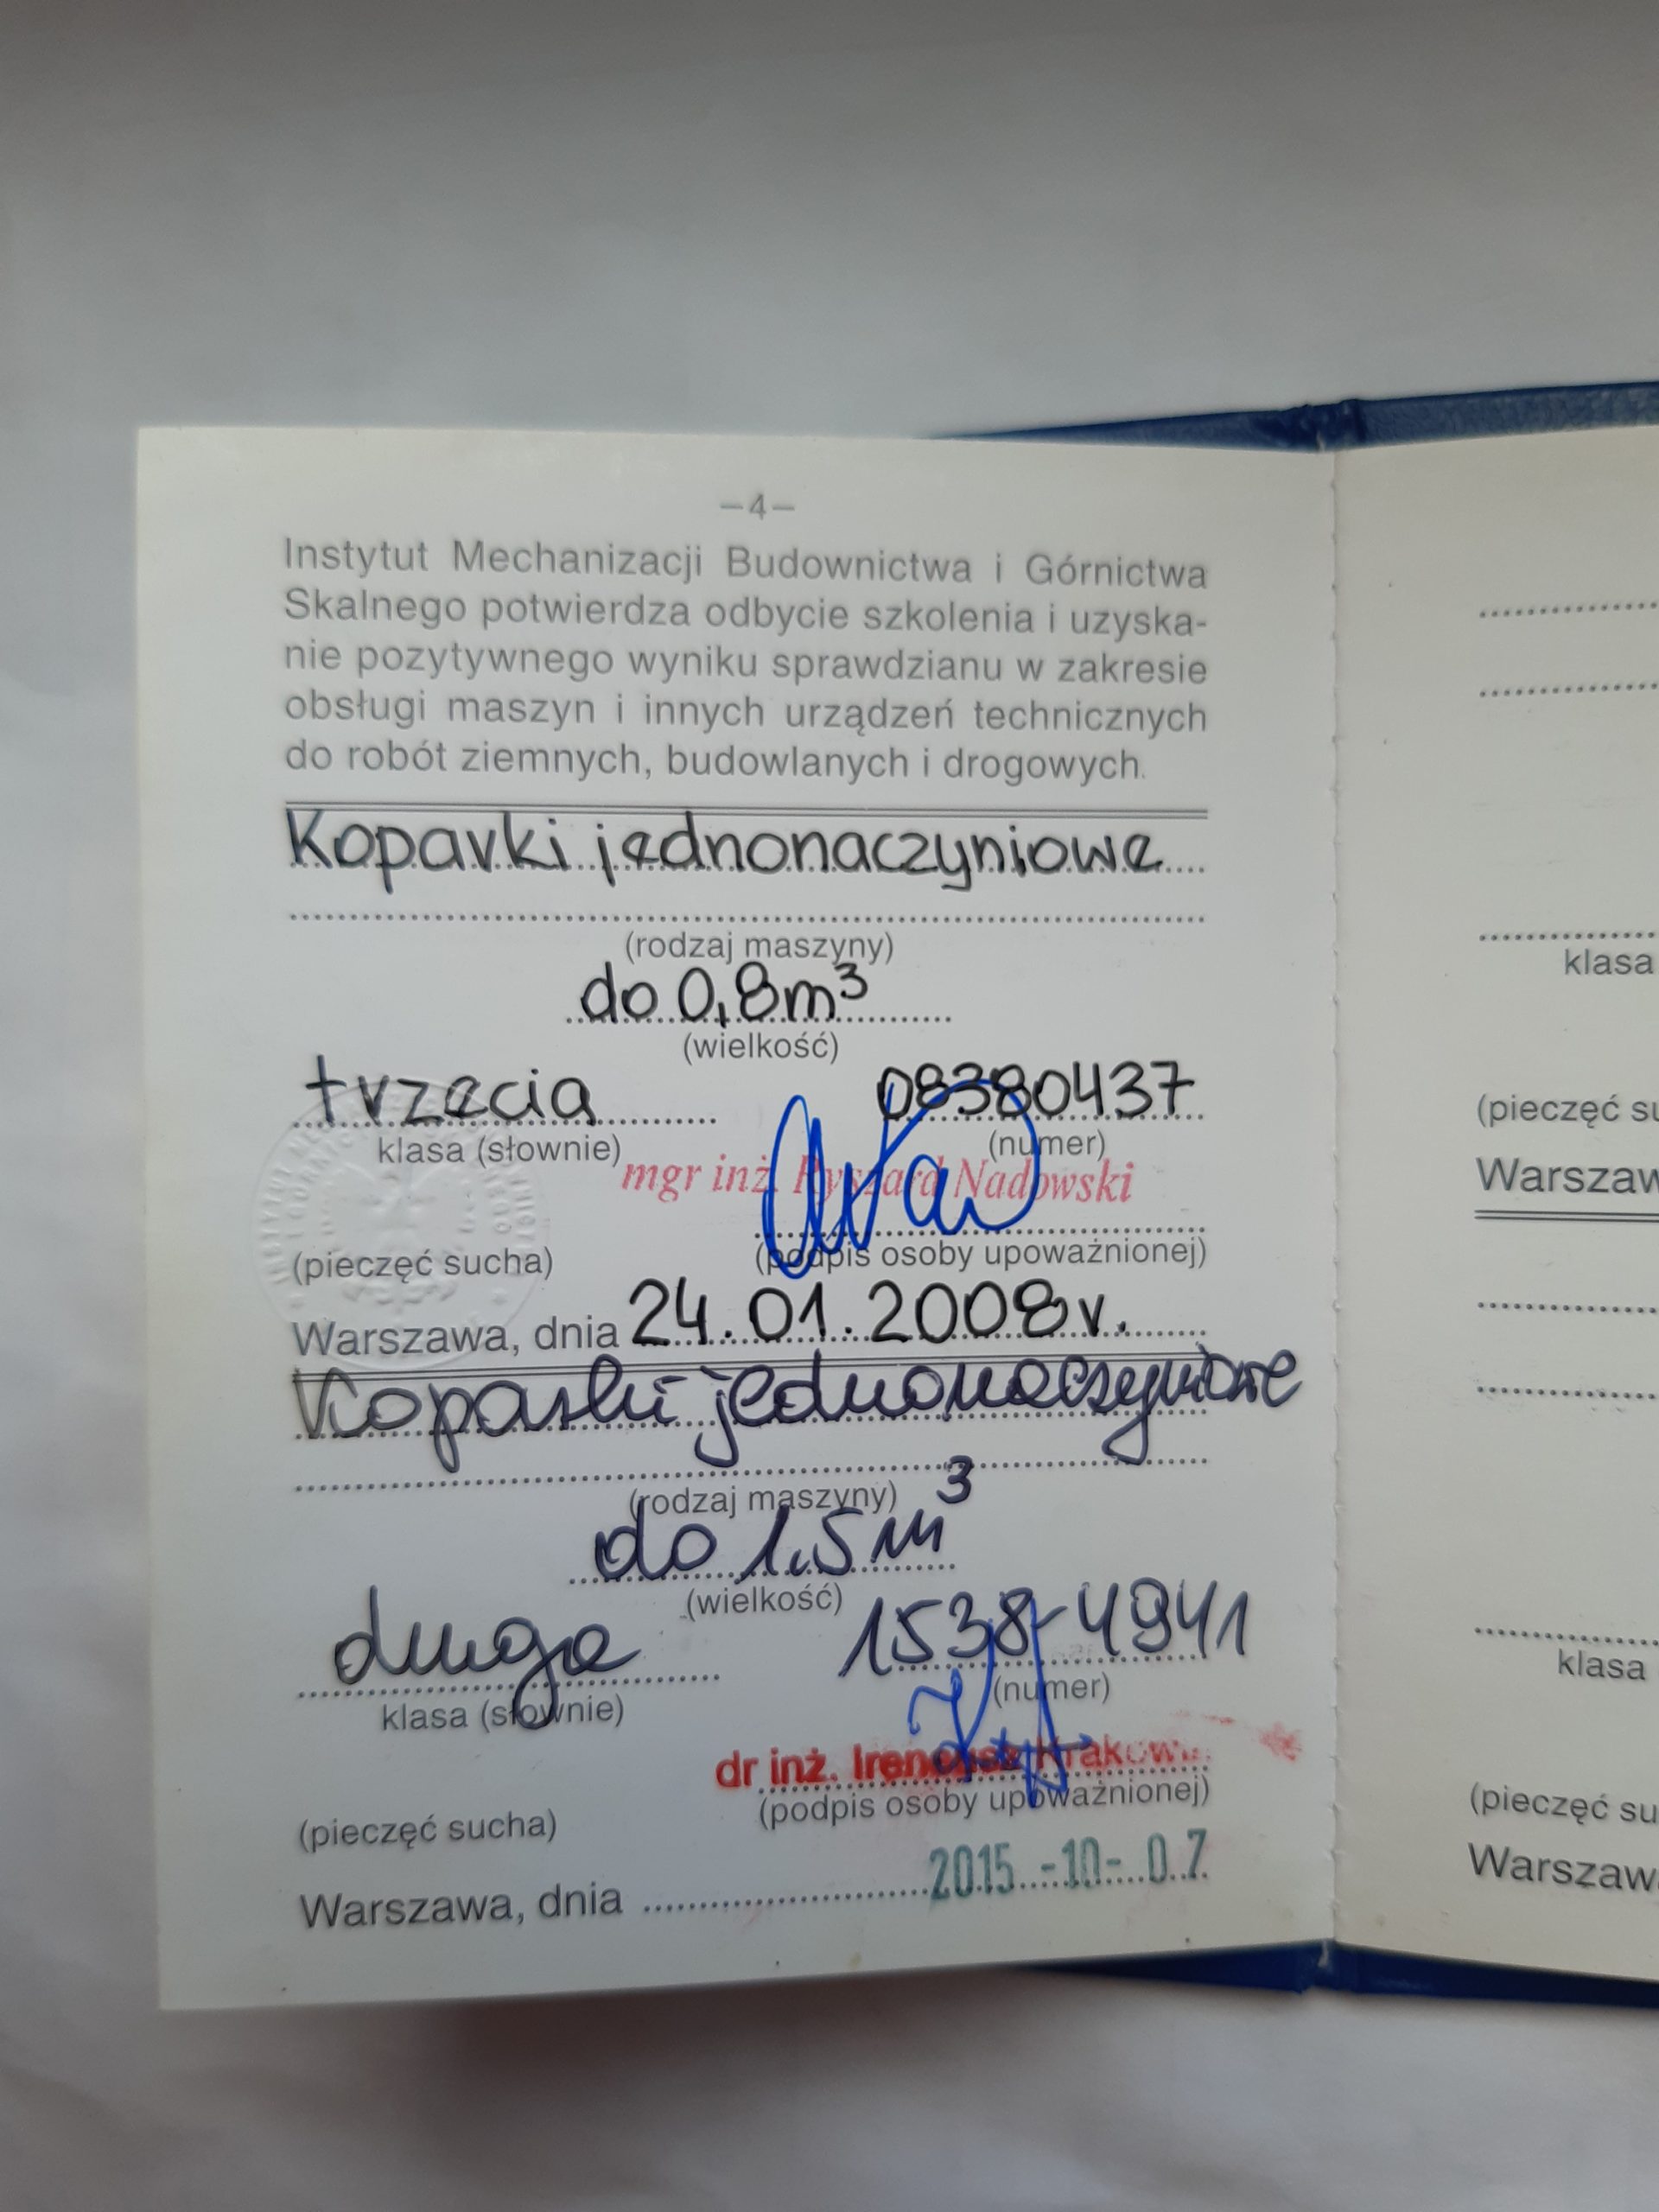 –4–
Instytut Mechanizacji Budownictwa i Górnictwa
Skalnego potwierdza odbycie szkolenia i uzyska-
nie pozytywnego wyniku sprawdzianu w zakresie
obsługi maszyn i innych urządzeń technicznych
do robót ziemnych, budowlanych i drogowych.
Koparki jednonaczyniowe
(rodzaj maszyny)
do 0,8m³
(wielkość)
trzecia 08380437
klasa (słownie) (numer)
mgr inż. Ryszard Nadowski
(pieczęć sucha) (podpis osoby upoważnionej)
Warszawa, dnia 24.01.2008r.
Koparki jednonaczyniowe
(rodzaj maszyny)
do 1.5 m³
(wielkość)
druga 1538-4941
klasa (słownie) (numer)
dr inż. Ireneusz
(pieczęć sucha) (podpis osoby upoważnionej)
Warszawa, dnia 2015 -10- 0 7
klasa
(pieczęć su
Warszaw
klasa
(pieczęć su
Warszaw